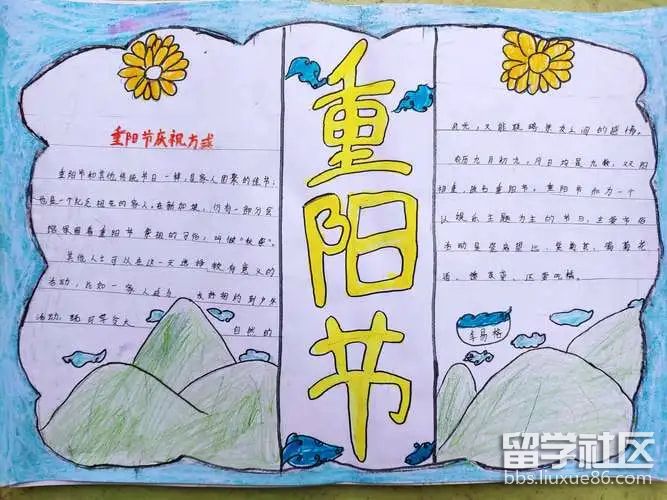 重阳节庆祝方式
重阳节和其他传统节日一样,是家人团聚的佳节;
也是一个纪念祖先的家人。在新加坡,仍有一部分家
保留着重阳节祭祖的习俗,叫做"秋祭"。
其他人士可以在这一天选择较有意义的
活动,比如一家人或与友好相约到户外
活动,既可享受大自然的
重阳节
且元,又能联络亲友之间的感情。
农历九月初九,月日均是九数,双阳
相重,故名重阳节。重阳节和为一个
以娱乐主题为主的节日,主要节俗
活动是登高望远、赏菊
花、插茱萸、还要吃糕。
李易格
留学社区
bbs.liuxue86.com